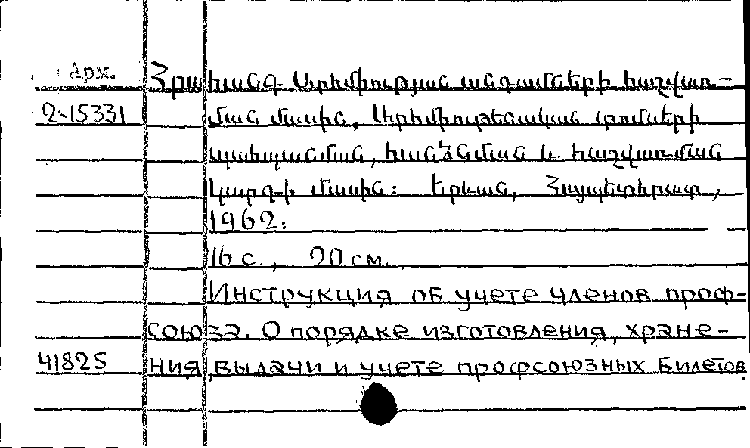 Арх. Հրահանգ Արհմիության անդամների հաշվառ-
2-15331 ման մասին, Արհմիութենական տոմսերի
պահպանման, հանձնման և հաշվառման
կարգի մասին: Երևան, Հայպետհրատ,
1962.
16 с., 20 см.
Инструкция об учете членов проф-
союза. О порядке изготовления, хране-
41825 ния, выдачи и учете профсоюзных билетов